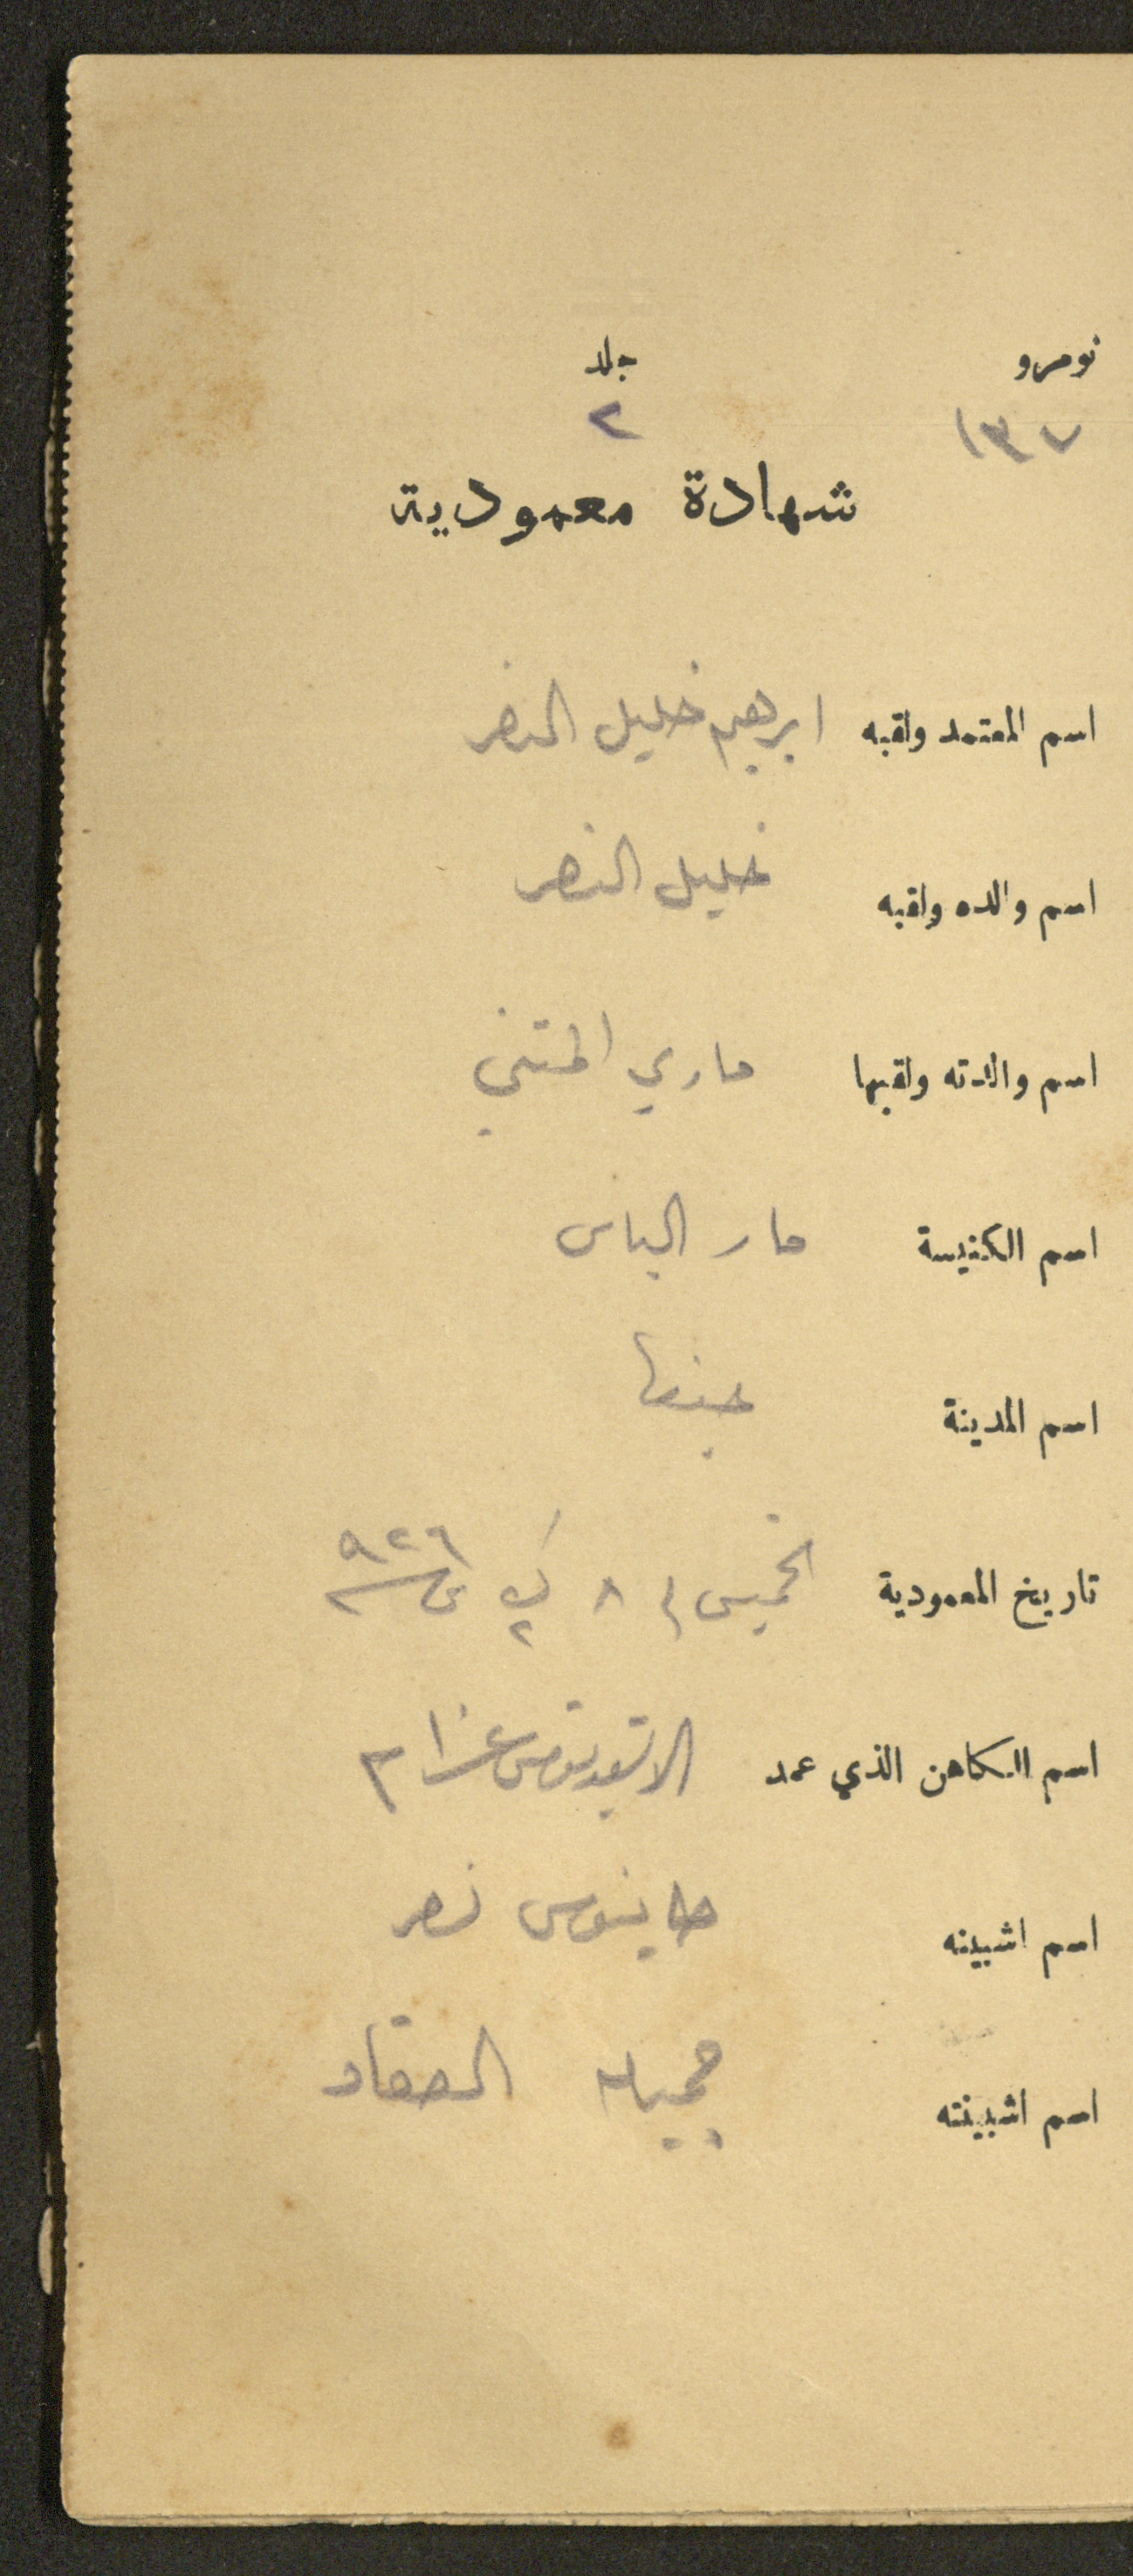 نومرو جلد
١٣٧ ٢
شهادة معمودية
اسم المعتمد ولقبه ابرهيم خليل النصر
اسم والده ولقبه خليل النصر
اسم والدته ولقبها ماري المتني
اسم الكنيسة مار الياس
اسم المدينة حيفا
تاريخ المعمودية الخميس ٨ ك٢ ٩٢٦
اسم الكاهن الذي عمد عزام
اسم اشبينه نصر
اسم اشبينته جميله